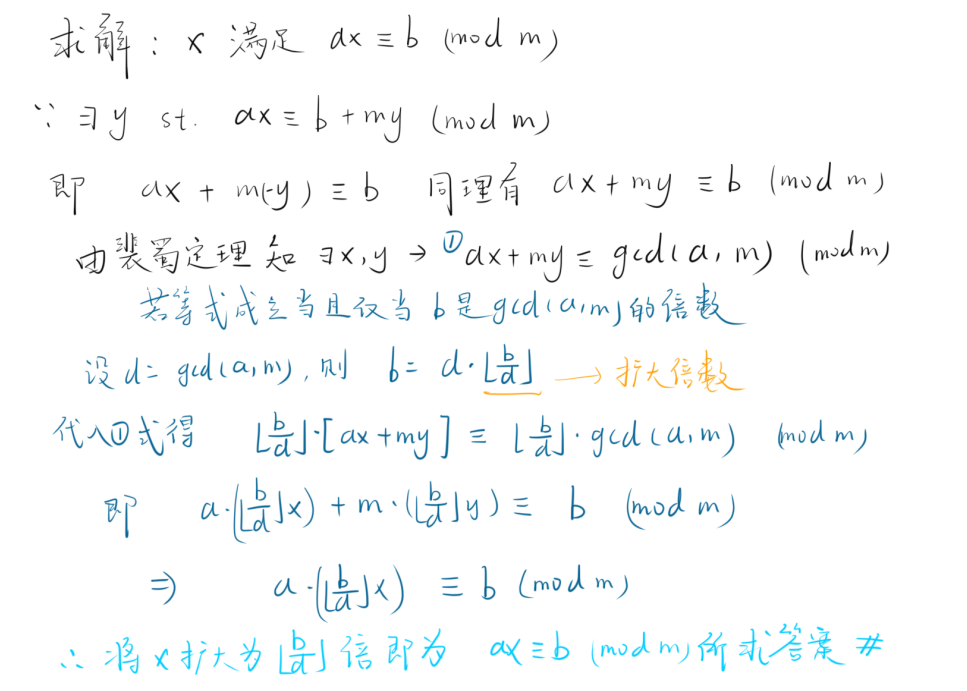 求解: x 满足 ax ≡ b (mod m)
∵ ∃ y st. ax ≡ b + my (mod m)
即 ax + m(-y) ≡ b 同理有 ax + my ≡ b (mod m)
由裴蜀定理知 ∃x,y → ① ax + my ≡ gcd(a, m) (mod m)
若等式成立当且仅当 b是gcd(a,m)的倍数
设 d = gcd(a,m), 则 b = d·⌊b/d⌋ → 扩大倍数
代入①式得 ⌊b/d⌋·[ax+my] ≡ ⌊b/d⌋·gcd(a,m) (mod m)
即 a·(⌊b/d⌋x) + m·(⌊b/d⌋y) ≡ b (mod m)
⇒ a·(⌊b/d⌋x) ≡ b (mod m)
∴ 将x扩大为⌊b/d⌋倍即为 ax≡b (mod m)所求答案 #